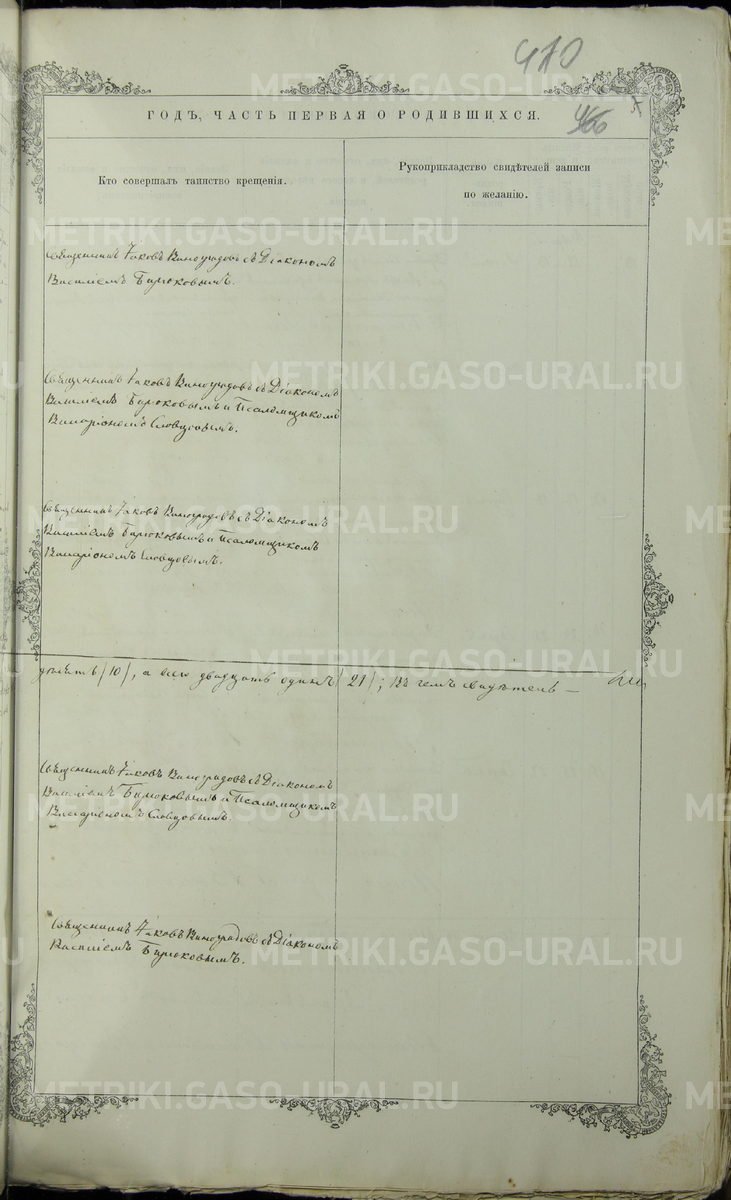 410
ГОДЪ, ЧАСТЬ ПЕРВАЯ О РОДИВШИХСЯ.
466
Кто совершалъ таинство крещенія.
Рукоприкладство свидѣтелей записи
по желанію.
Священникъ Іаковъ Виноградовъ съ Діакономъ
Василіемъ Бирюковымъ.
Священникъ Іаковъ Виноградовъ съ Діакономъ
Василіемъ Бирюковымъ и Псаломщикомъ
Иларіономъ Словцовымъ.
Священникъ Іаковъ Виноградовъ съ Діакономъ
Василіемъ Бирюковымъ и Псаломщикомъ
Иларіономъ Словцовымъ.
десять (10), а всего двадцать одинъ (21); въ чемъ свидѣтель—
Священникъ Іаковъ Виноградовъ съ Діакономъ
Василіемъ Бирюковымъ и Псаломщикомъ
Иларіономъ Словцовымъ.
Священникъ Іаковъ Виноградовъ съ Діакономъ
Василіемъ Бирюковымъ.
METRIKI.GASO-URAL.RU